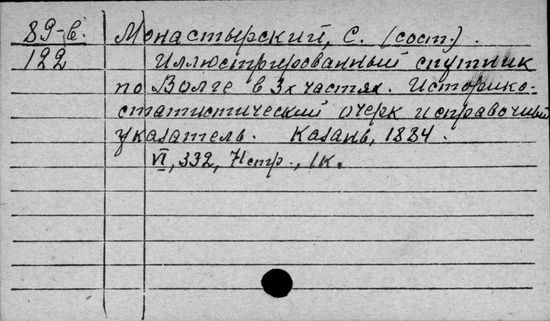 89-в. Монастырский, С. (сост.).
122 Иллюстрированный спутник
по Волге в 3х частях. Историко-
статистический очерк и справочный
указатель. Казань, 1884.
VI, 332, IV стр., 1к.